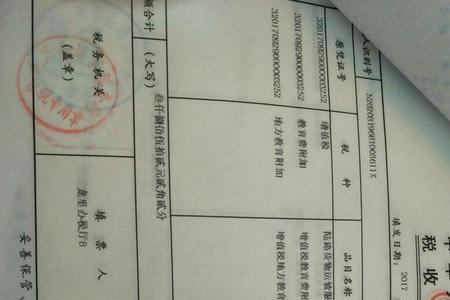 税收
填发日期：2017
人识别号
原凭证号 税种 品目名称
增值税 陆路货物运输服
320170929000003252 教育费附加 增值税教育费附
320170929000003252 地方教育附加 增值税地方教育
额合计 （大写） 叁仟捌佰伍拾贰元贰角贰分
税务机关
（盖章）
填票人
龙里办税厅8
妥善保管